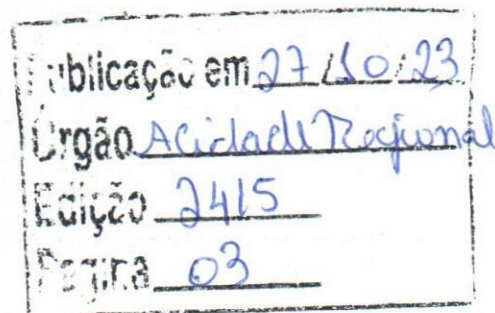 Publicação em 27/10/23
Órgão A Cidade Regional
Edição 2415
Pagina 03